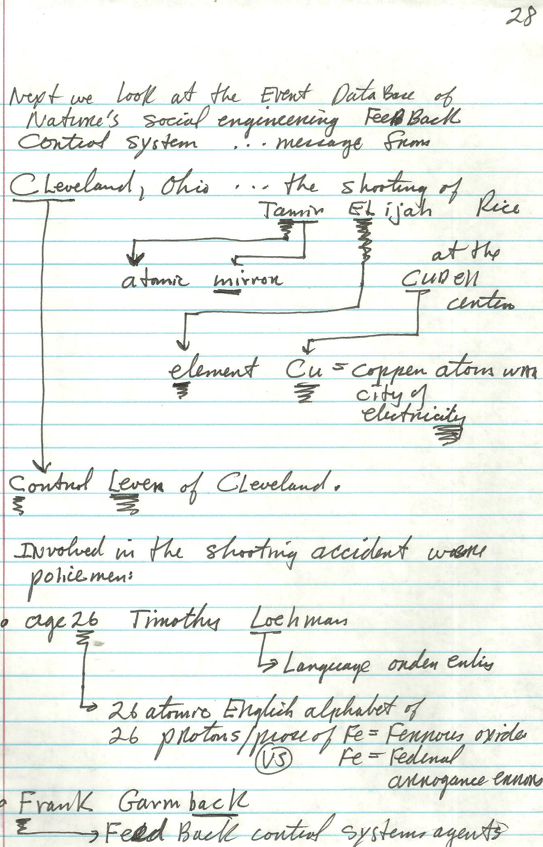 28
Next we look at the Event DataBase of
Nature's social engineering FeedBack
Control system ... message from
CLeveland, Ohio ... the shooting of
Tamir ELijah Rice
at the
atomic mirror CUDell
center
element Cu = copper atom with
city of
electricity
Control Lever of CLeveland.
Involved in the shooting accident were
policemen:
age 26 Timothy Loehman
Language order entity
26 atomic English alphabet of
26 protons/prose of Fe = Ferrous oxides
VS Fe = Federal
arrogance errors
Frank Garmback
Feed Back control systems agents